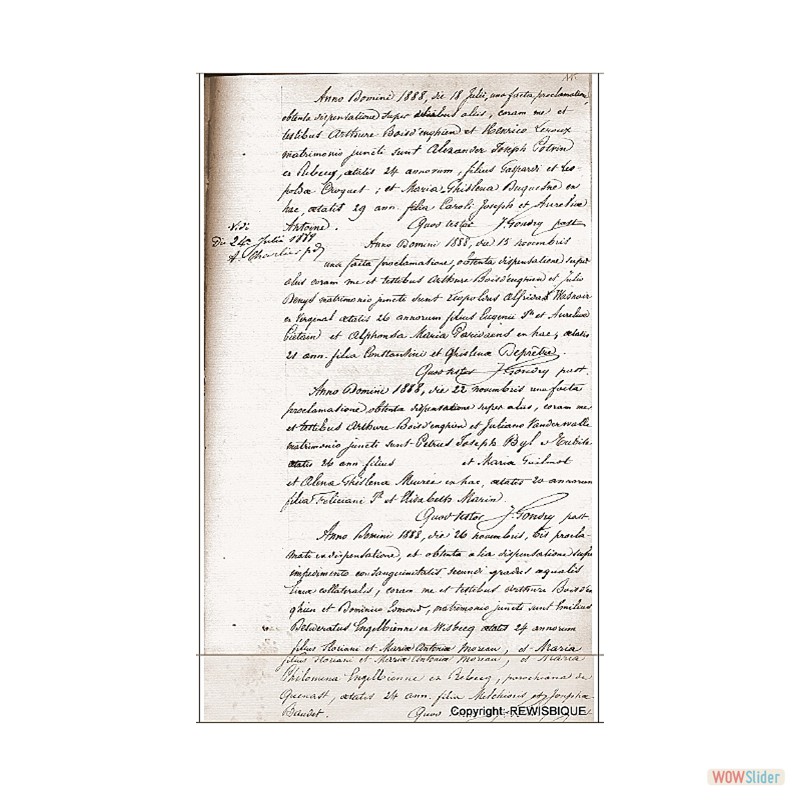 Anno Domini 1888, die 18 Julii, una facta proclamatione,
obtenta dispensatione super aliis, coram me et
testibus Arthure Boisd'enghien et Henrico Leroux
matrimonio juncti sunt Alexander Joseph Potvin
ex Rebecq, ætatis 24 annorum, filius Gaspardi et Leo-
poldæ Croquet; et Maria Ghislena Duquesne ex
hac, ætatis 29 ann. filia Caroli Joseph et Aureliæ
Antoine. Quod testor J. Gondry past.
Vidi
Die 24a Julii 1889
Anno Domini 1888, die 13 novembris
una facta proclamatione, obtenta dispensatione super
aliis coram me et testibus Arthure Boisd'enghien et Julio
Denys matrimonio juncti sunt Alfridus
ex Virginal ætatis 26 annorum filius Eugenii Jh et Aureliæ
et Alphonsa Maria Paridaens ex hac, ætatis
21 ann. filia Constantini et Ghislenæ Deprêtre.
Quod testor J. Gondry past.
Anno Domini 1888, die 22 novembris una facta
proclamatione obtenta dispensatione super aliis, coram me
et testibus Arthure Boisd'enghien et Juliano Vanderwalle
matrimonio juncti sunt Petrus Joseph Byl e
ætatis 26 ann filius et Maria Guilmot
et Alena Ghislena Meurée ex hac, ætatis 20 annorum
filia Feliciani Jh et Elisabeth Marin.
Quod testor J. Gondry past.
Anno Domini 1888, die 26 novembris, bis procla-
mati ex dispensatione, et obtenta alia dispensatione super
impedimento consanguinitatis secundi gradus æqualis
lineæ collateralis, coram me et testibus Arthure Boisd'en
ghien et Dominico Esmond, matrimonio juncti sunt Emilius
Engelbienne ex Wisbecq ætatis 24 annorum
filius Floriani et Mariæ Antoniæ Moreau, et Maria
filius Floriani et Mariæ Antoniæ Moreau, et Maria
Philomena Engelbienne ex Rebecq, parochiana de
Quenast, ætatis 24 ann. filia Melchioris et Josephæ
Baudet. Quod
Copyright:-REWISBIQUE
WOWSlider